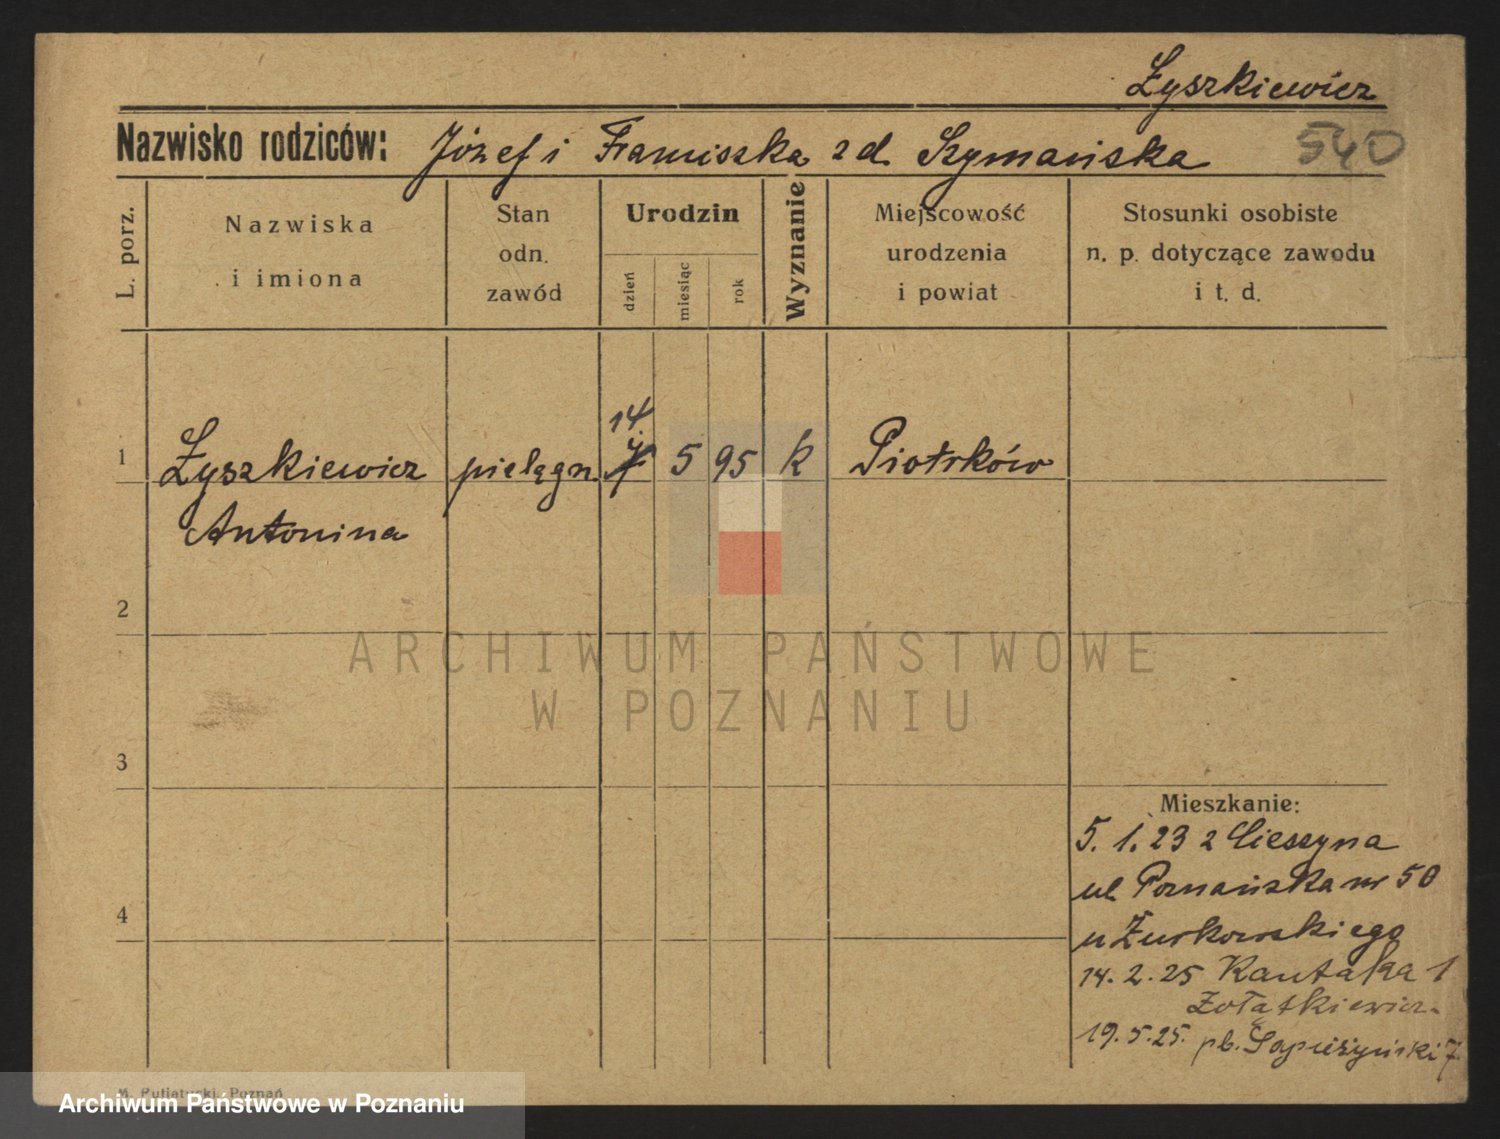 Łyszkiewicz
Nazwisko rodziców: Józef i Franciszka z d. Szymańska
540
L. porz.
Nazwiska
i imiona
Stan
odn.
zawód
Urodzin
dzień
miesiąc
rok
Wyznanie
Miejscowość
urodzenia
i powiat
Stosunki osobiste
n. p. dotyczące zawodu
i t. d.
14.
1 Łyszkiewicz pielągn. 5 95 k Piotrków
Antonina
2
ARCHIWUM PAŃSTWOWE
W POZNANIU
3
Mieszkanie:
5. 1. 23 z Cieszyna
ul Poznańska nr 50
4
u Żurkowskiego
14. 2. 25 Kantaka 1
Zołątkiewicz
19. 5. 25. pb. Sapieżyński 7
M. Putiatycki, Poznań
Archiwum Państwowe w Poznaniu